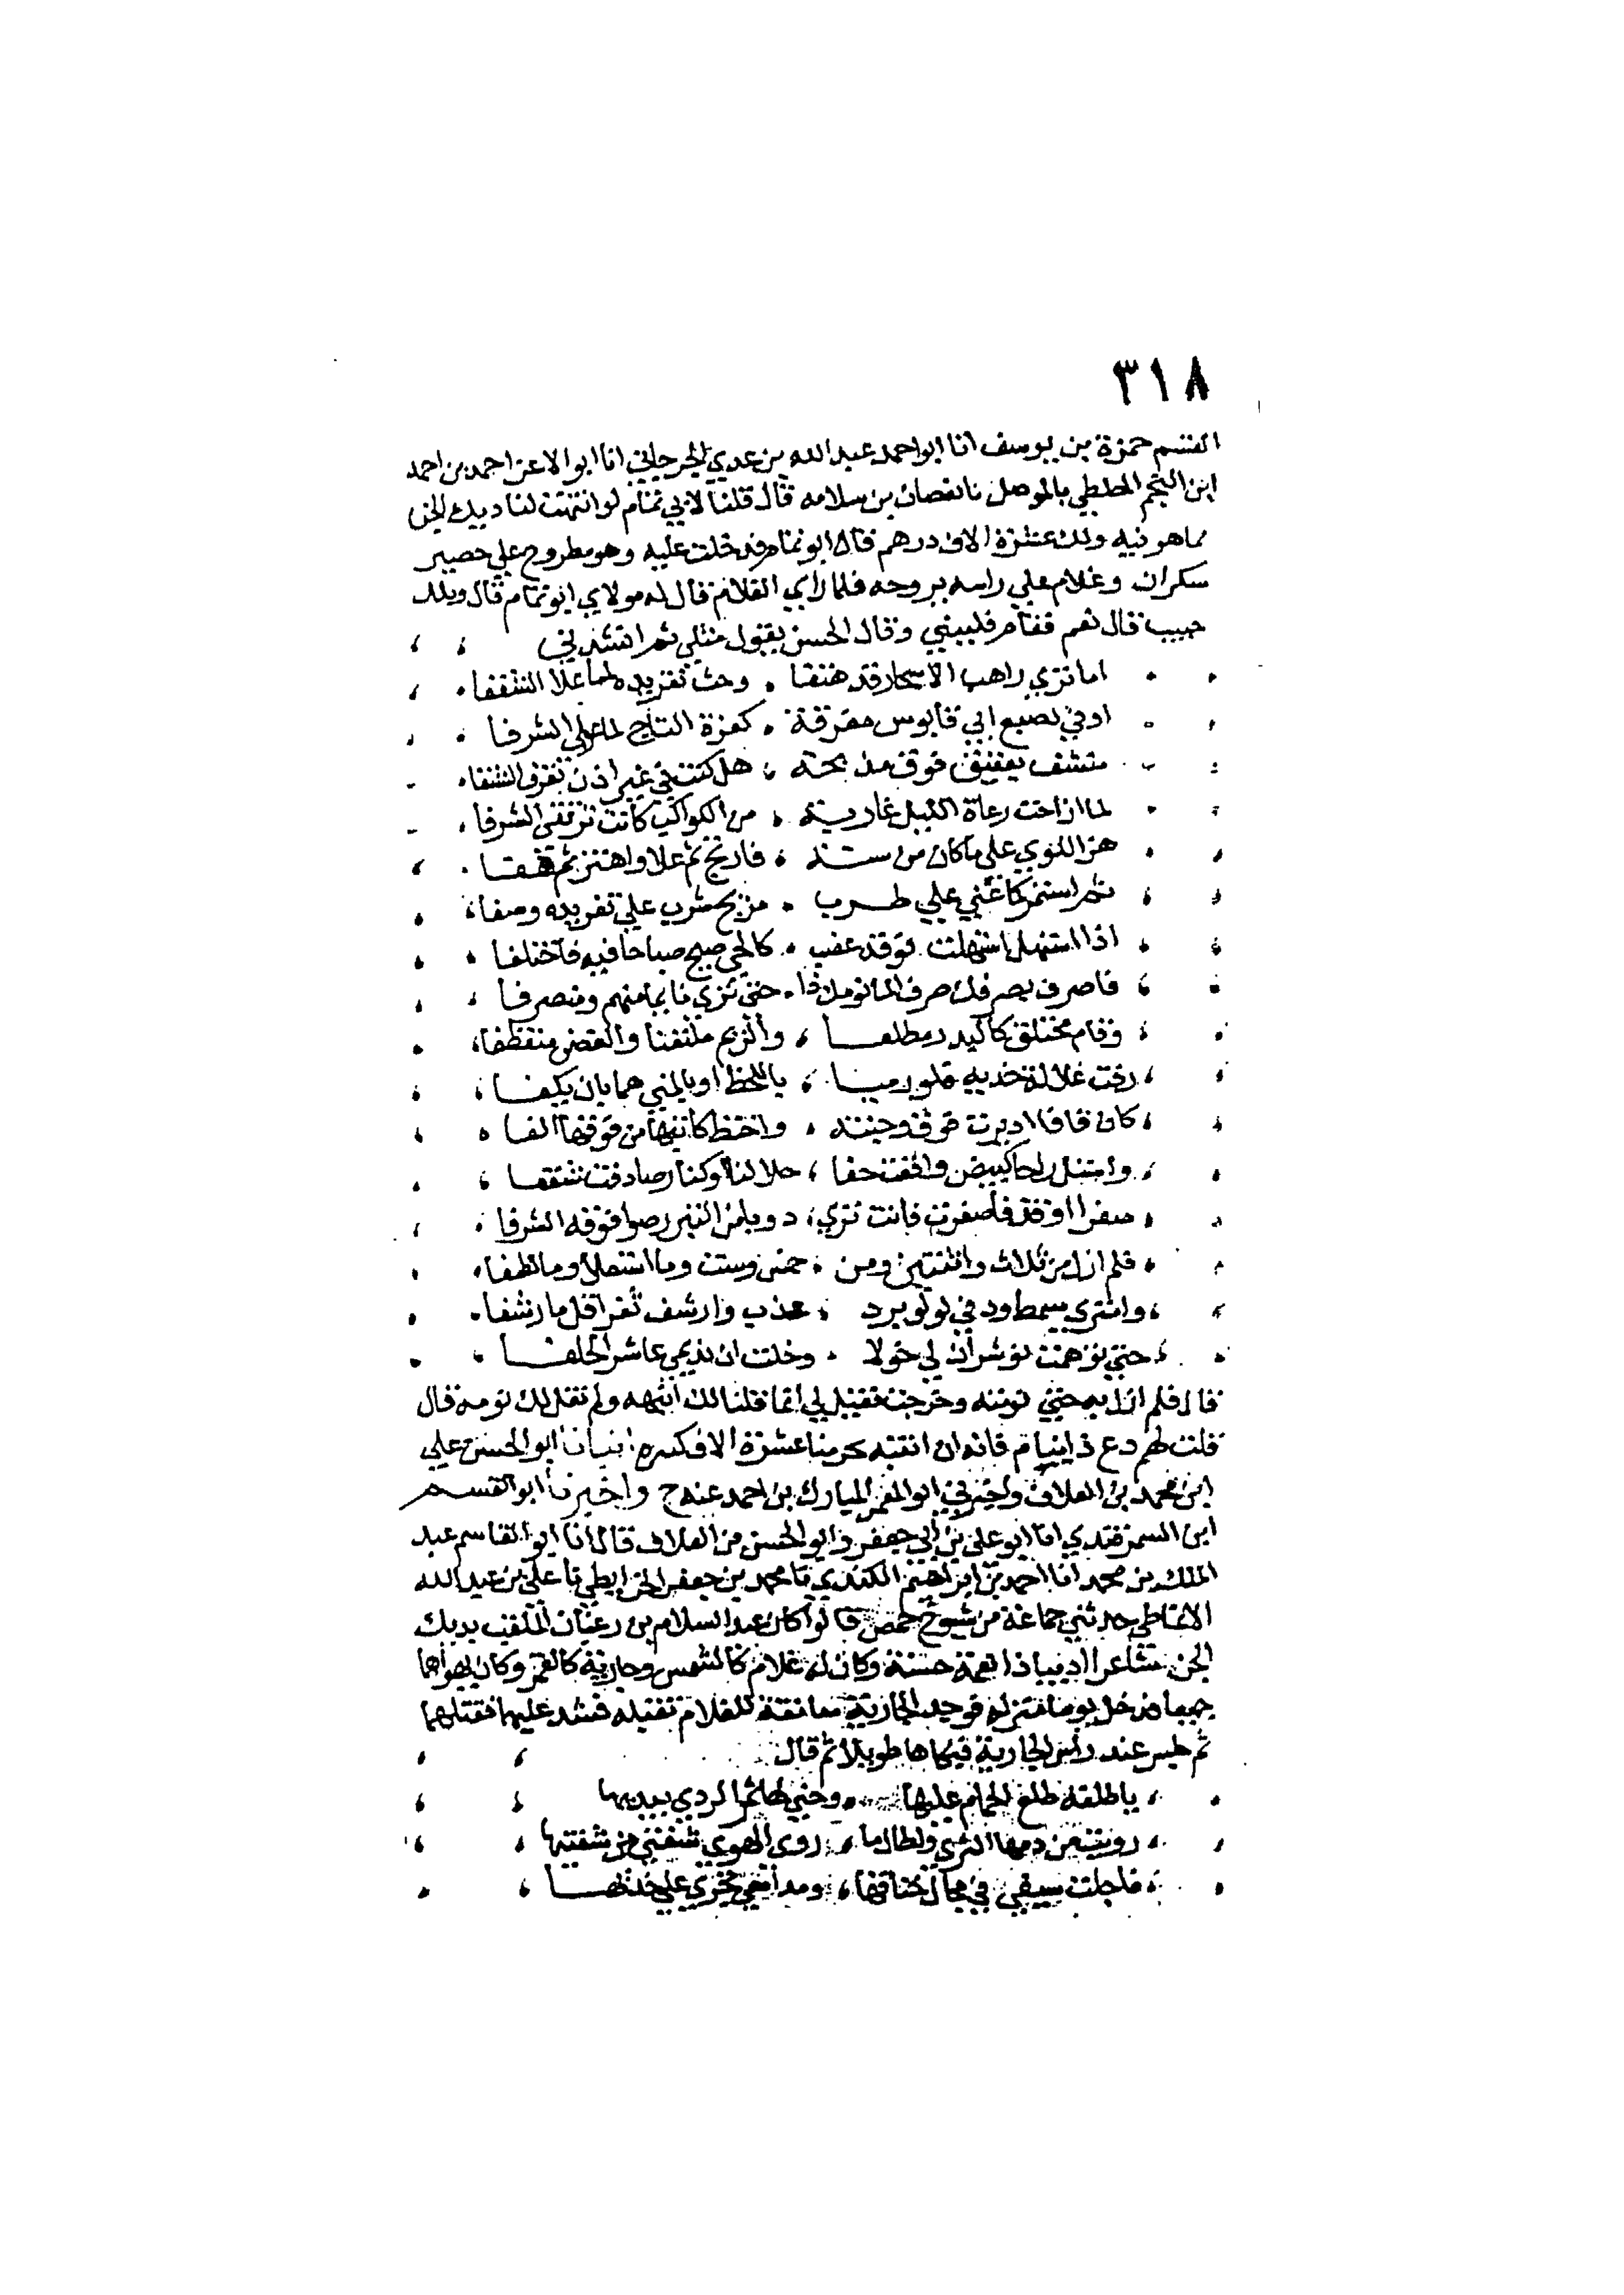 ٣١٨
القسم حمزة بن يوسف انا ابو احمد عبد الله بن عدي الجرجاني انا ابو الاعز احمد بن احمد
ابن بالموصل نا نعصان بن سلامه قال قلنا لابي تمام لو انتهت لنا ديك الجن
مما هو فيه ولك عشرة الاف درهم قال ابو تمام فدخلت عليه وهو مطروح علي حصير
سكران وغلام علي راسه يروحه فلما راي الغلام قال له مولاي ابو تمام قال ويلك
حبيب قال نعم فقام فلببني وقال الحسن يقول مثلي ثم انشدني
اما تري راهب الاسحار قد هتفا وحث تغريده لما علا الشعفا
اوفي بصبع ابي قابوس مفرقه كغرة التاج لما علي الشرفا
مشنف بعقيق فوق مذبحه هل كنت في غير اذن تعرف الشنفا
لما اراحت رعاة الليل غاديه من الكواكب كانت ترتقي الشرفا
هز اللوي علي ما كان من سنه فارتج ثم علا واهتز ثم هفا
ثم استمر كما غني علي طرب مريح شرب علي تغريده وصفا
اذا استهل استهلت فوقه عصب كالحي صبح صباحا فيه فاختلفا
فاصرف بصرفك صرف الما يومك ذا حتي تري نايما منهم ومنصرفا
وقام مختلق كالبدر مطلعا والريم ملتفتا والغصن منعطفا
رقت غلالة خديه فلو رميا باللحظ او بالمني هما بان يكفا
كان قافا اديرت فوق وجنته واختط كاتبها من فوقها الفا
حلا لنا
صفرا
فلم ازل من ثلاث واثنتين ومن خمس وست وما استعلا وما لطفا
عذب وارشف ثغرا قل ما رشفا
حتي توهمت نوشروان لي خولا وخلت ان نديمي عاشر الخلفا
قال فلم ازل به حتي نومته وخرجت فقيل لي انما قلنا لك انبهه ولم نقل لك نومه قال
قلت لهم دع ذا ينام فانه ان انتبه حرمنا عشرة الاف كبيره انبانا ابو الحسن علي
ابن محمد بن العلاف واخبرني ابو المعمر المبارك بن احمد عنه ح واخبرنا ابو القسم
ابن السمرقندي انا ابو علي بن ابي جعفر وابو الحسن بن العلاف قالا انا ابو القاسم عبد
الملك بن محمد انا احمد بن ابراهيم الكندي نا محمد بن جعفر الخرايطي نا علي بن عبد الله
الانماطي حدثني جماعة من شيوخ حمص قالوا كان عبد السلام بن رغبان الملقب بديك
الجن شاعرا اديبا ذا نعمة حسنة وكان له غلام كالشمس وجارية كالقمر وكان يهواهما
جميعا فدخل يوما منزله فوجد الجارية معانقة للغلام تقبله فشد عليهما فقتلهما
ثم جلس عند راس الجارية فبكاها طويلا ثم قال
يا طلعة طلع الحمام عليها وجني لها ثمر الردي بيديها
رويت من دمها الثري ولطالما روي الهوي شفتي من شفتيها
فاجلت سيفي في مجال خناقها ومدامعي تجري علي خديها